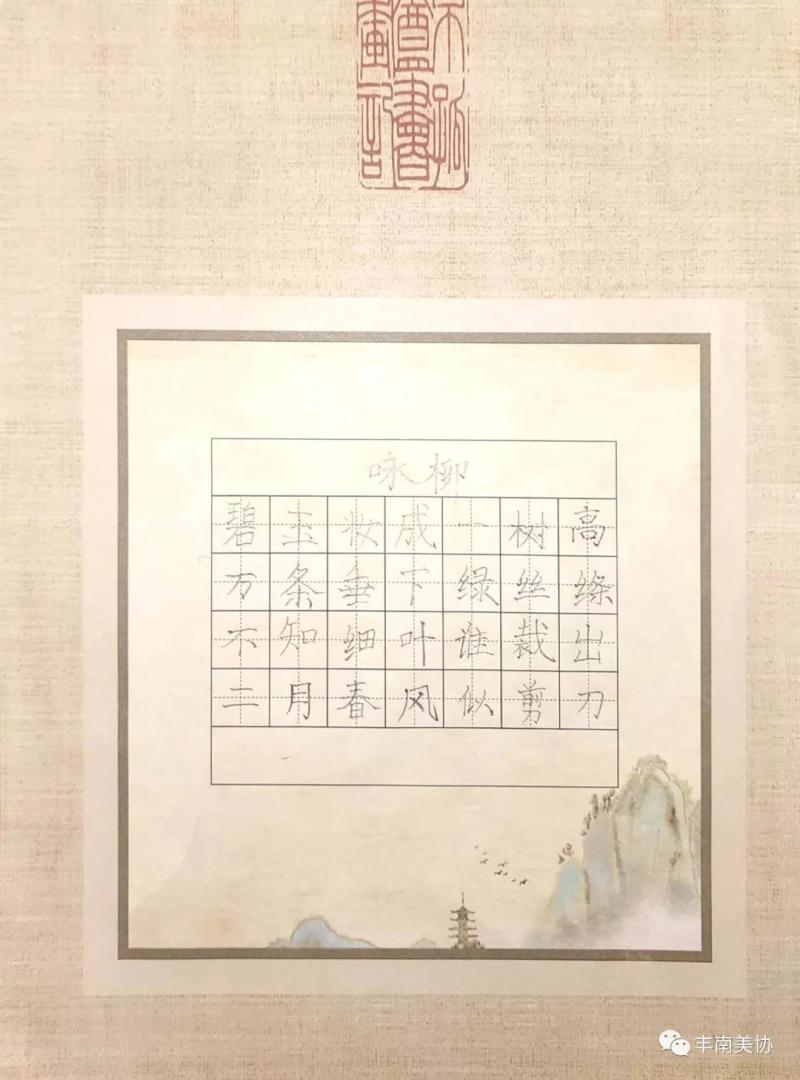 咏柳
碧玉妆成一树高
万条垂下绿丝绦
不知细叶谁裁出
二月春风似剪刀
丰南美协